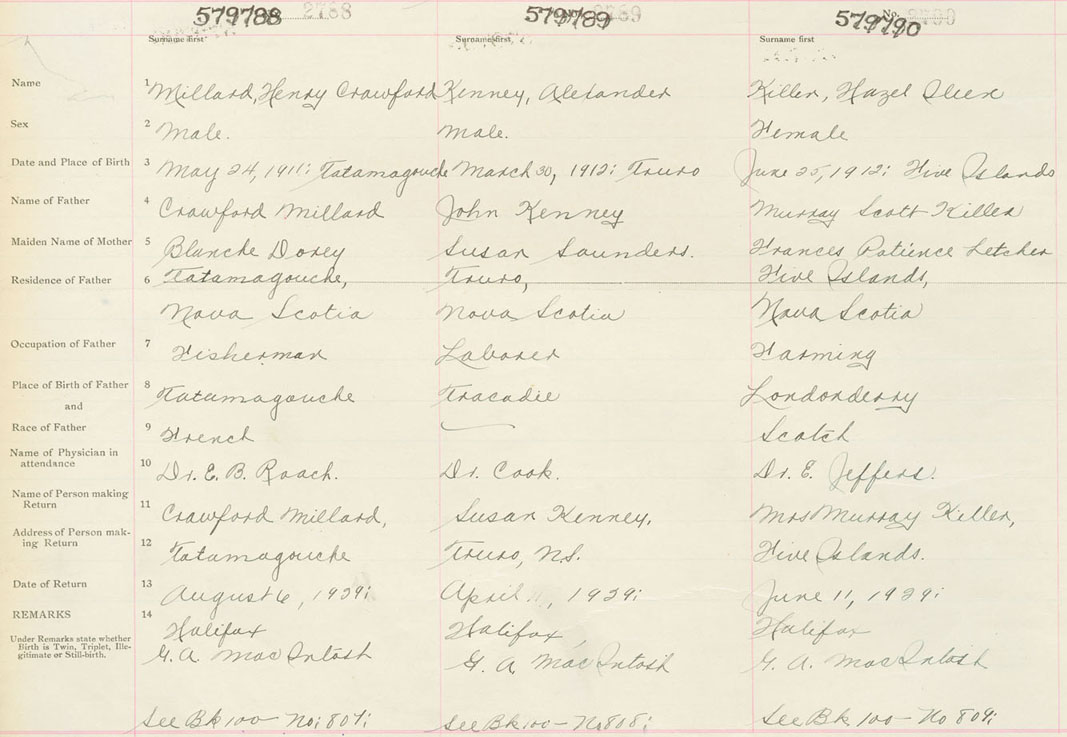 579788 2788 579789 579790 No.
Surname first Surname first Surname first
Name 1 Millard, Henry Crawford Kenney, Alexander Killer, Hazel
Sex 2 Male. Male. Female
Date and Place of Birth 3 May 24, 1911; Tatamagouche March 30, 1912; Truro June 25, 1912; Five Islands
Name of Father 4 Crawford Millard John Kenney Murray Scott Killer
Maiden Name of Mother 5 Blanche Dorey Susan Saunders. Frances Patience Letcher
Residence of Father 6 Tatamagouche, Truro, Five Islands,
Nova Scotia Nova Scotia Nova Scotia
Occupation of Father 7 Fisherman Laborer Farming
Place of Birth of Father 8 Tatamagouche Tracadie Londonderry
and
Race of Father 9 French Scotch
Name of Physician in
attendance 10 Dr. E. B. Roach. Dr. Cook. Dr. E. Jeffers.
Name of Person making
Return 11 Crawford Millard, Susan Kenney, Mrs Murray Killer,
Address of Person mak-
ing Return 12 Tatamagouche Truro, N.S. Five Islands.
Date of Return 13 August 6, 1939; April 11, 1939; June 11, 1939;
REMARKS 14 Halifax Halifax, Halifax
Under Remarks state whether
Birth is Twin, Triplet, Ille-
gitimate or Still-birth.
G. A. MacIntosh G. A. MacIntosh G. A. MacIntosh
See Bk 100 - No; 807; See Bk 100 - No 808; See Bk 100 - No 809;